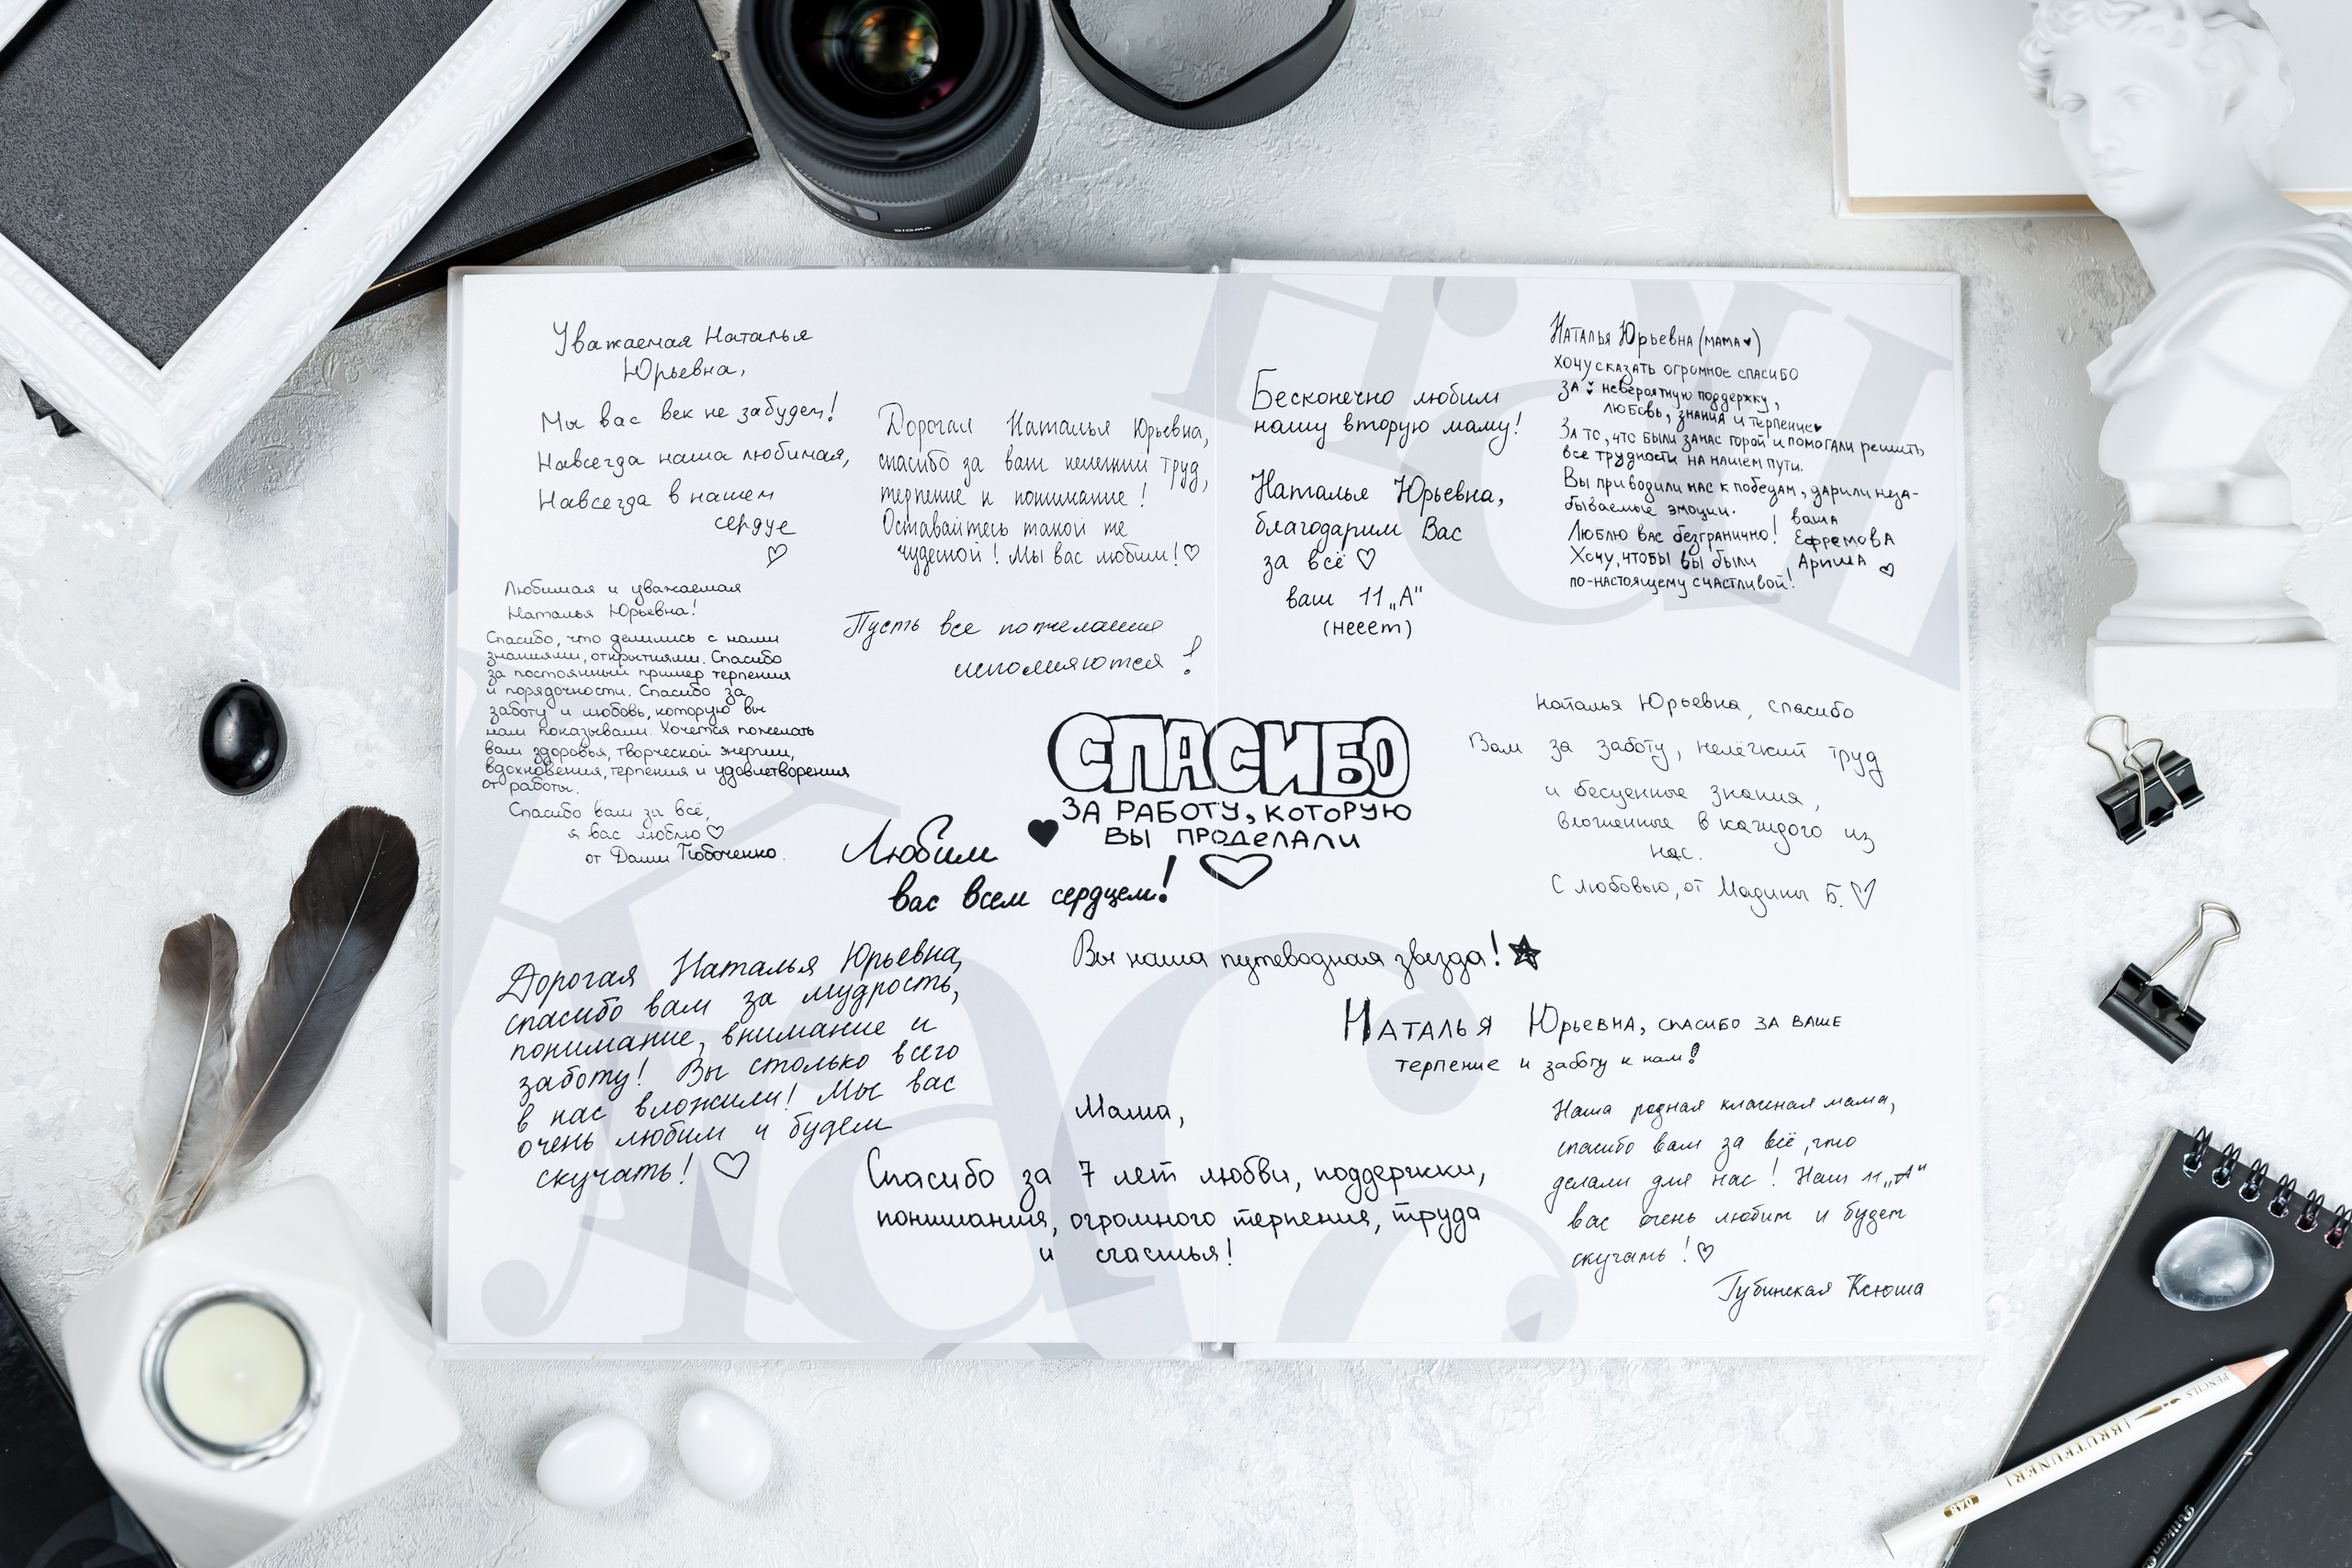 SIGMA
Уважаемая Наталья
Юрьевна,
Мы вас век не забудем!
Навсегда наша любимая,
Навсегда в нашем
сердце
Дорогая Наталья Юрьевна,
спасибо за ваш нелегкий труд,
терпение и понимание!
Оставайтесь такой же
чудесной! Мы вас любим!♡
Любимая и уважаемая
Наталья Юрьевна!
Спасибо, что делились с нами
знаниями, открытиями. Спасибо
за постоянный пример терпения
и порядочности. Спасибо за
заботу и любовь, которую вы
нам показывали. Хочется пожелать
вам здоровья, творческой энергии,
вдохновения, терпения и удовлетворения
от работы.
Спасибо вам за всё,
я вас люблю♡
от Даши
Пусть все пожелания
исполняются!
Бесконечно любим
нашу вторую маму!
Наталья Юрьевна,
благодарим Вас
за всё♡
ваш 11„А“
(несет)
Наталья Юрьевна (мама♥)
хочу сказать огромное спасибо
за невероятную поддержку,
любовь, знания и терпение♥
За то, что были за нас горой и помогали решить
все трудности на нашем пути.
Вы приводили нас к победам, дарили неза-
бываемые эмоции.
Люблю вас безгранично!
Хочу, чтобы вы были
по-настоящему счастливой!
ваша
Ефремова
Ариша ♡
СПАСИБО
ЗА РАБОТУ, КОТОРУЮ
ВЫ ПРОДЕЛАЛИ
Любим
вас всем сердцем!
Наталья Юрьевна, спасибо
Вам за заботу, нелёгкий труд
и бесценные знания,
вложенные в каждого из
нас.
С любовью, от Мадины Б.♡
Вы наша путеводная звезда!★
Дорогая Наталья Юрьевна,
спасибо вам за мудрость,
понимание, внимание и
заботу! Вы столько всего
в нас вложили! Мы вас
очень любим и будем
скучать! ♡
Наталья Юрьевна, спасибо за ваше
терпение и заботу к нам!
Мама,
Спасибо за 7 лет любви, поддержки,
понимания, огромного терпения, труда
и счастья!
Наша родная классная мама,
спасибо вам за всё, что
делали для нас! Наш 11„А“
вас очень любит и будет
скучать!♡
Губинская Ксюша
BRUTFUNER
PENCILS